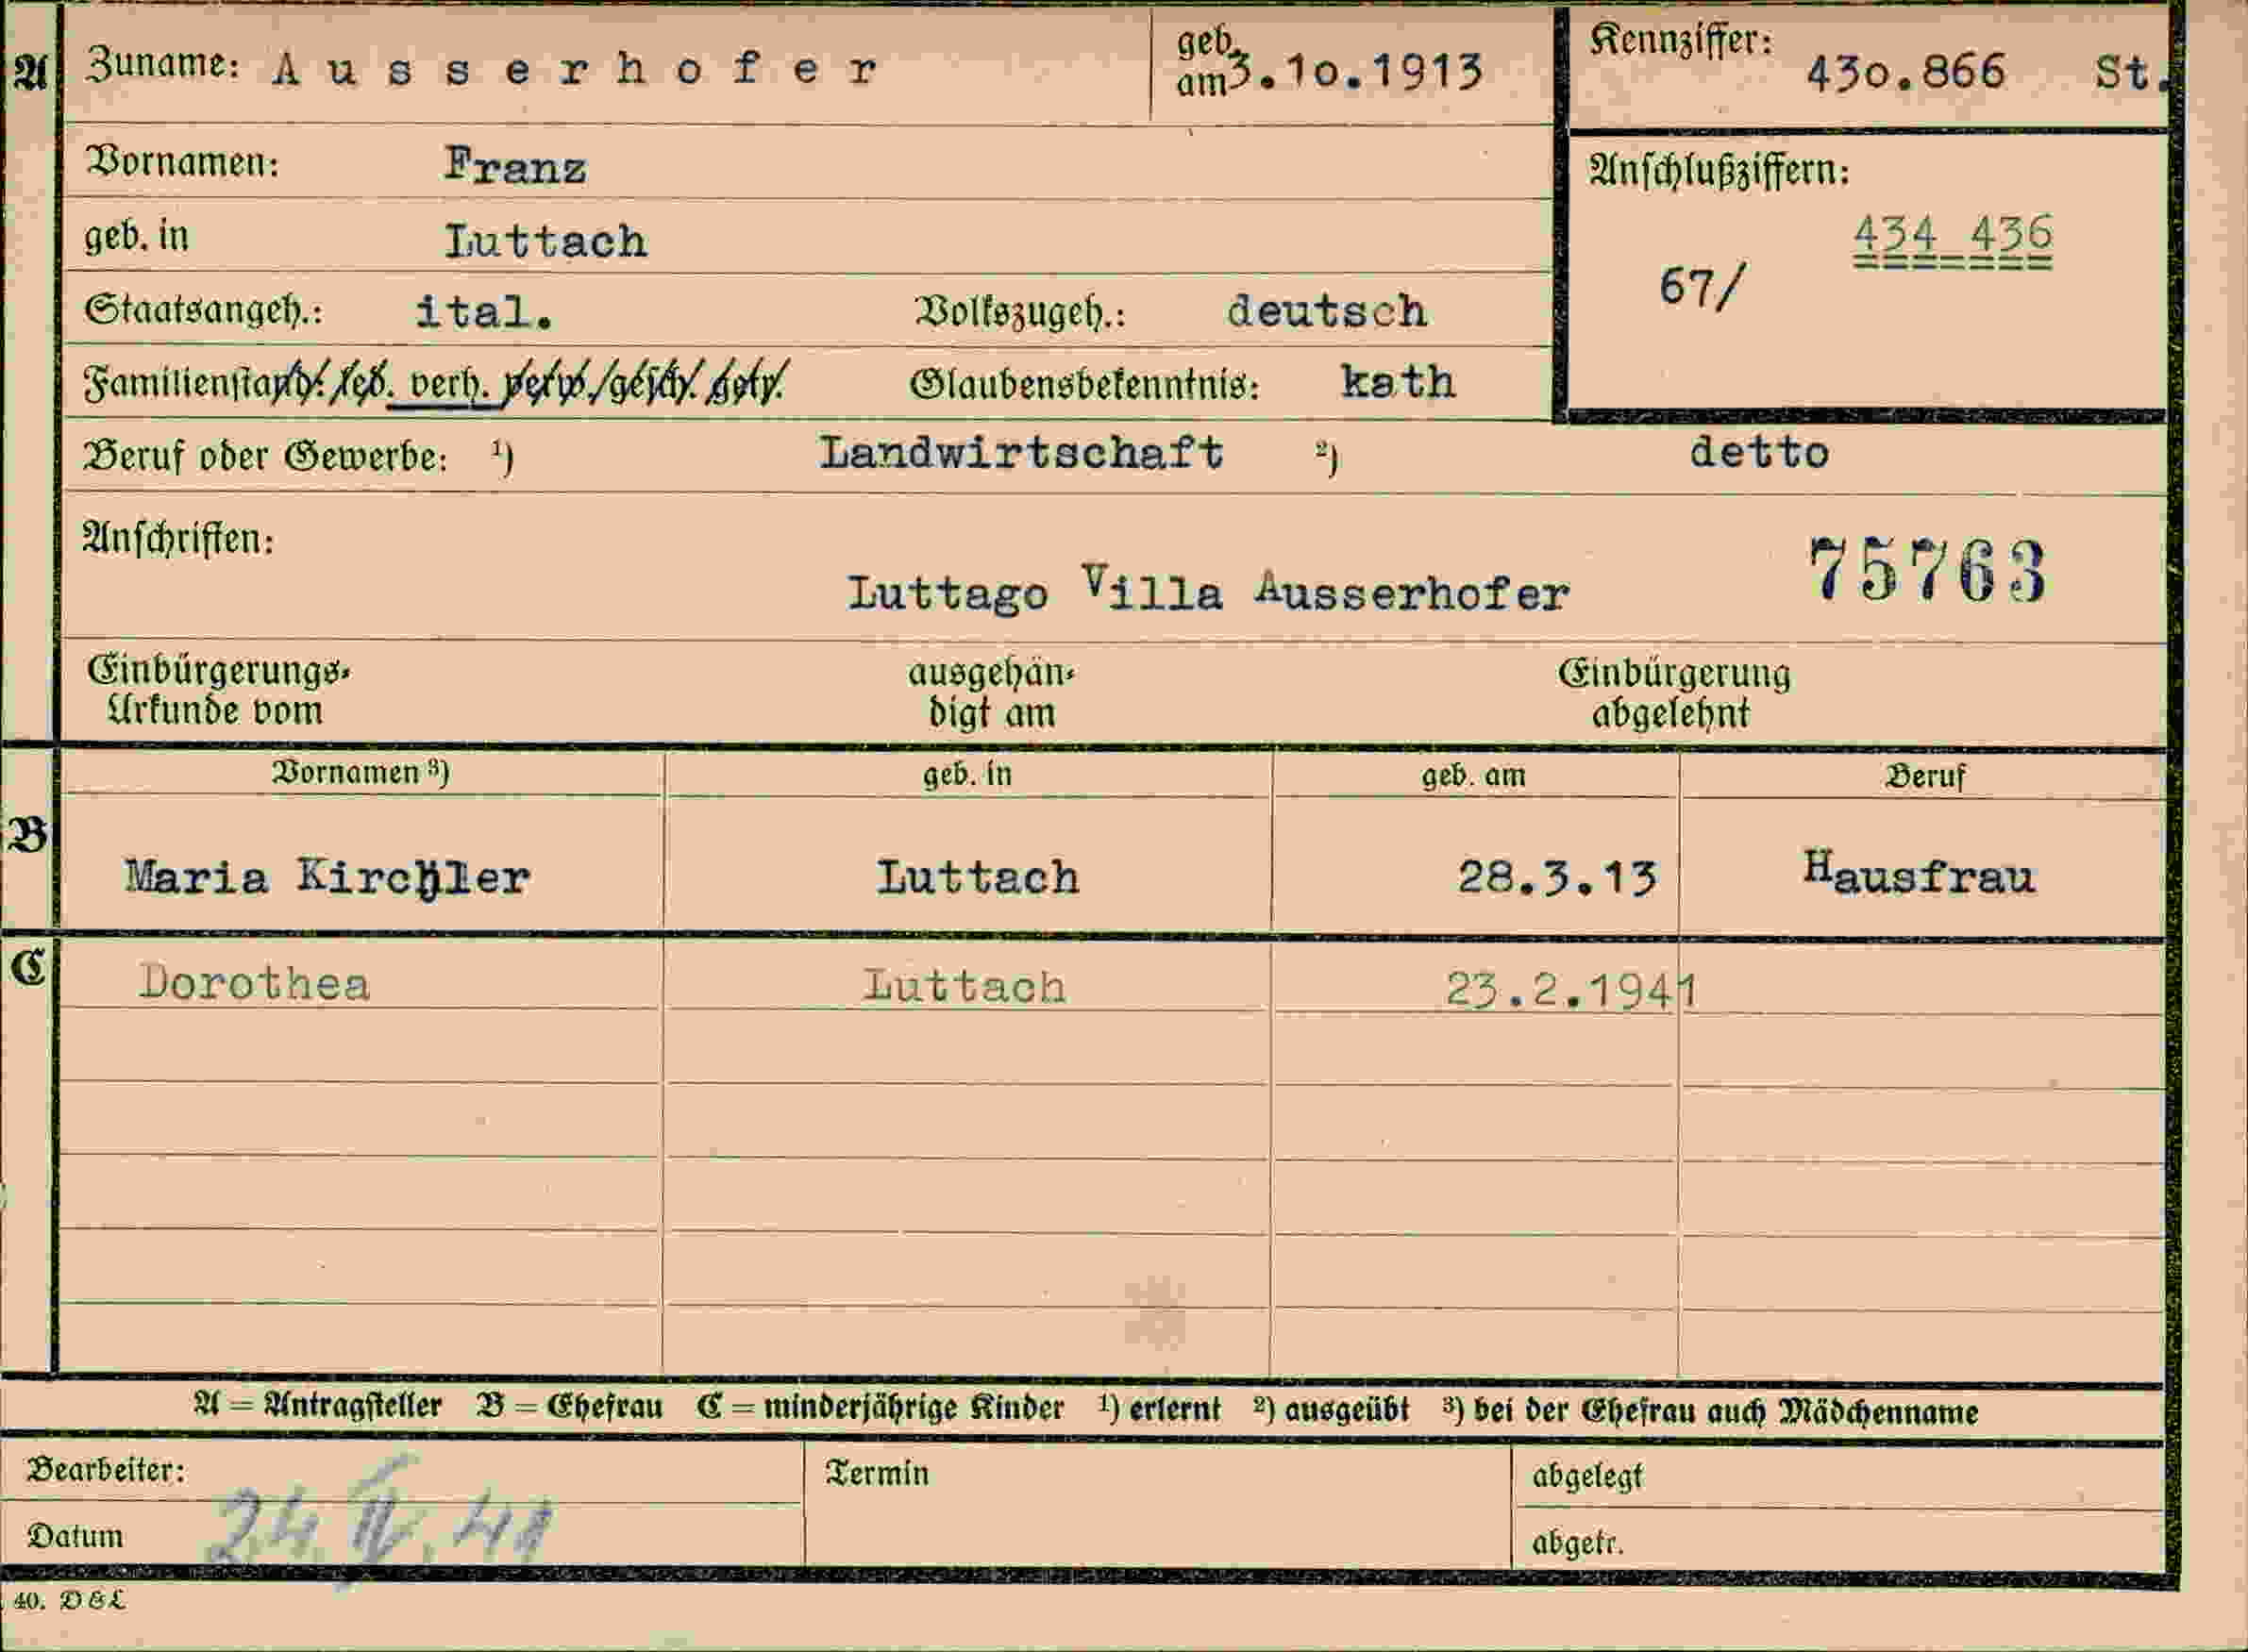 A Zuname: Ausserhofer geb. am 3.10.1913 Kennziffer: 430.866 St.
Vornamen: Franz Anschlußziffern:
geb. in Luttach 434 436
67/
Staatsangeh.: ital. Volkszugeh.: deutsch
Familienstand: led. verh. verw. gesch. getr. Glaubensbekenntnis: kath
Beruf oder Gewerbe: ¹) Landwirtschaft ²) detto
Anschriften:
Luttago Villa Ausserhofer 75763
Einbürgerungs- ausgehän- Einbürgerung
Urkunde vom digt am abgelehnt
Vornamen ³) geb. in geb. am Beruf
B Maria Kirchler Luttach 28.3.13 Hausfrau
C Dorothea Luttach 23.2.1941
A = Antragsteller B = Ehefrau C = minderjährige Kinder ¹) erlernt ²) ausgeübt ³) bei der Ehefrau auch Mädchenname
Bearbeiter: Termin abgelegt
Datum 24. IV. 41 abgetr.
40. DEL